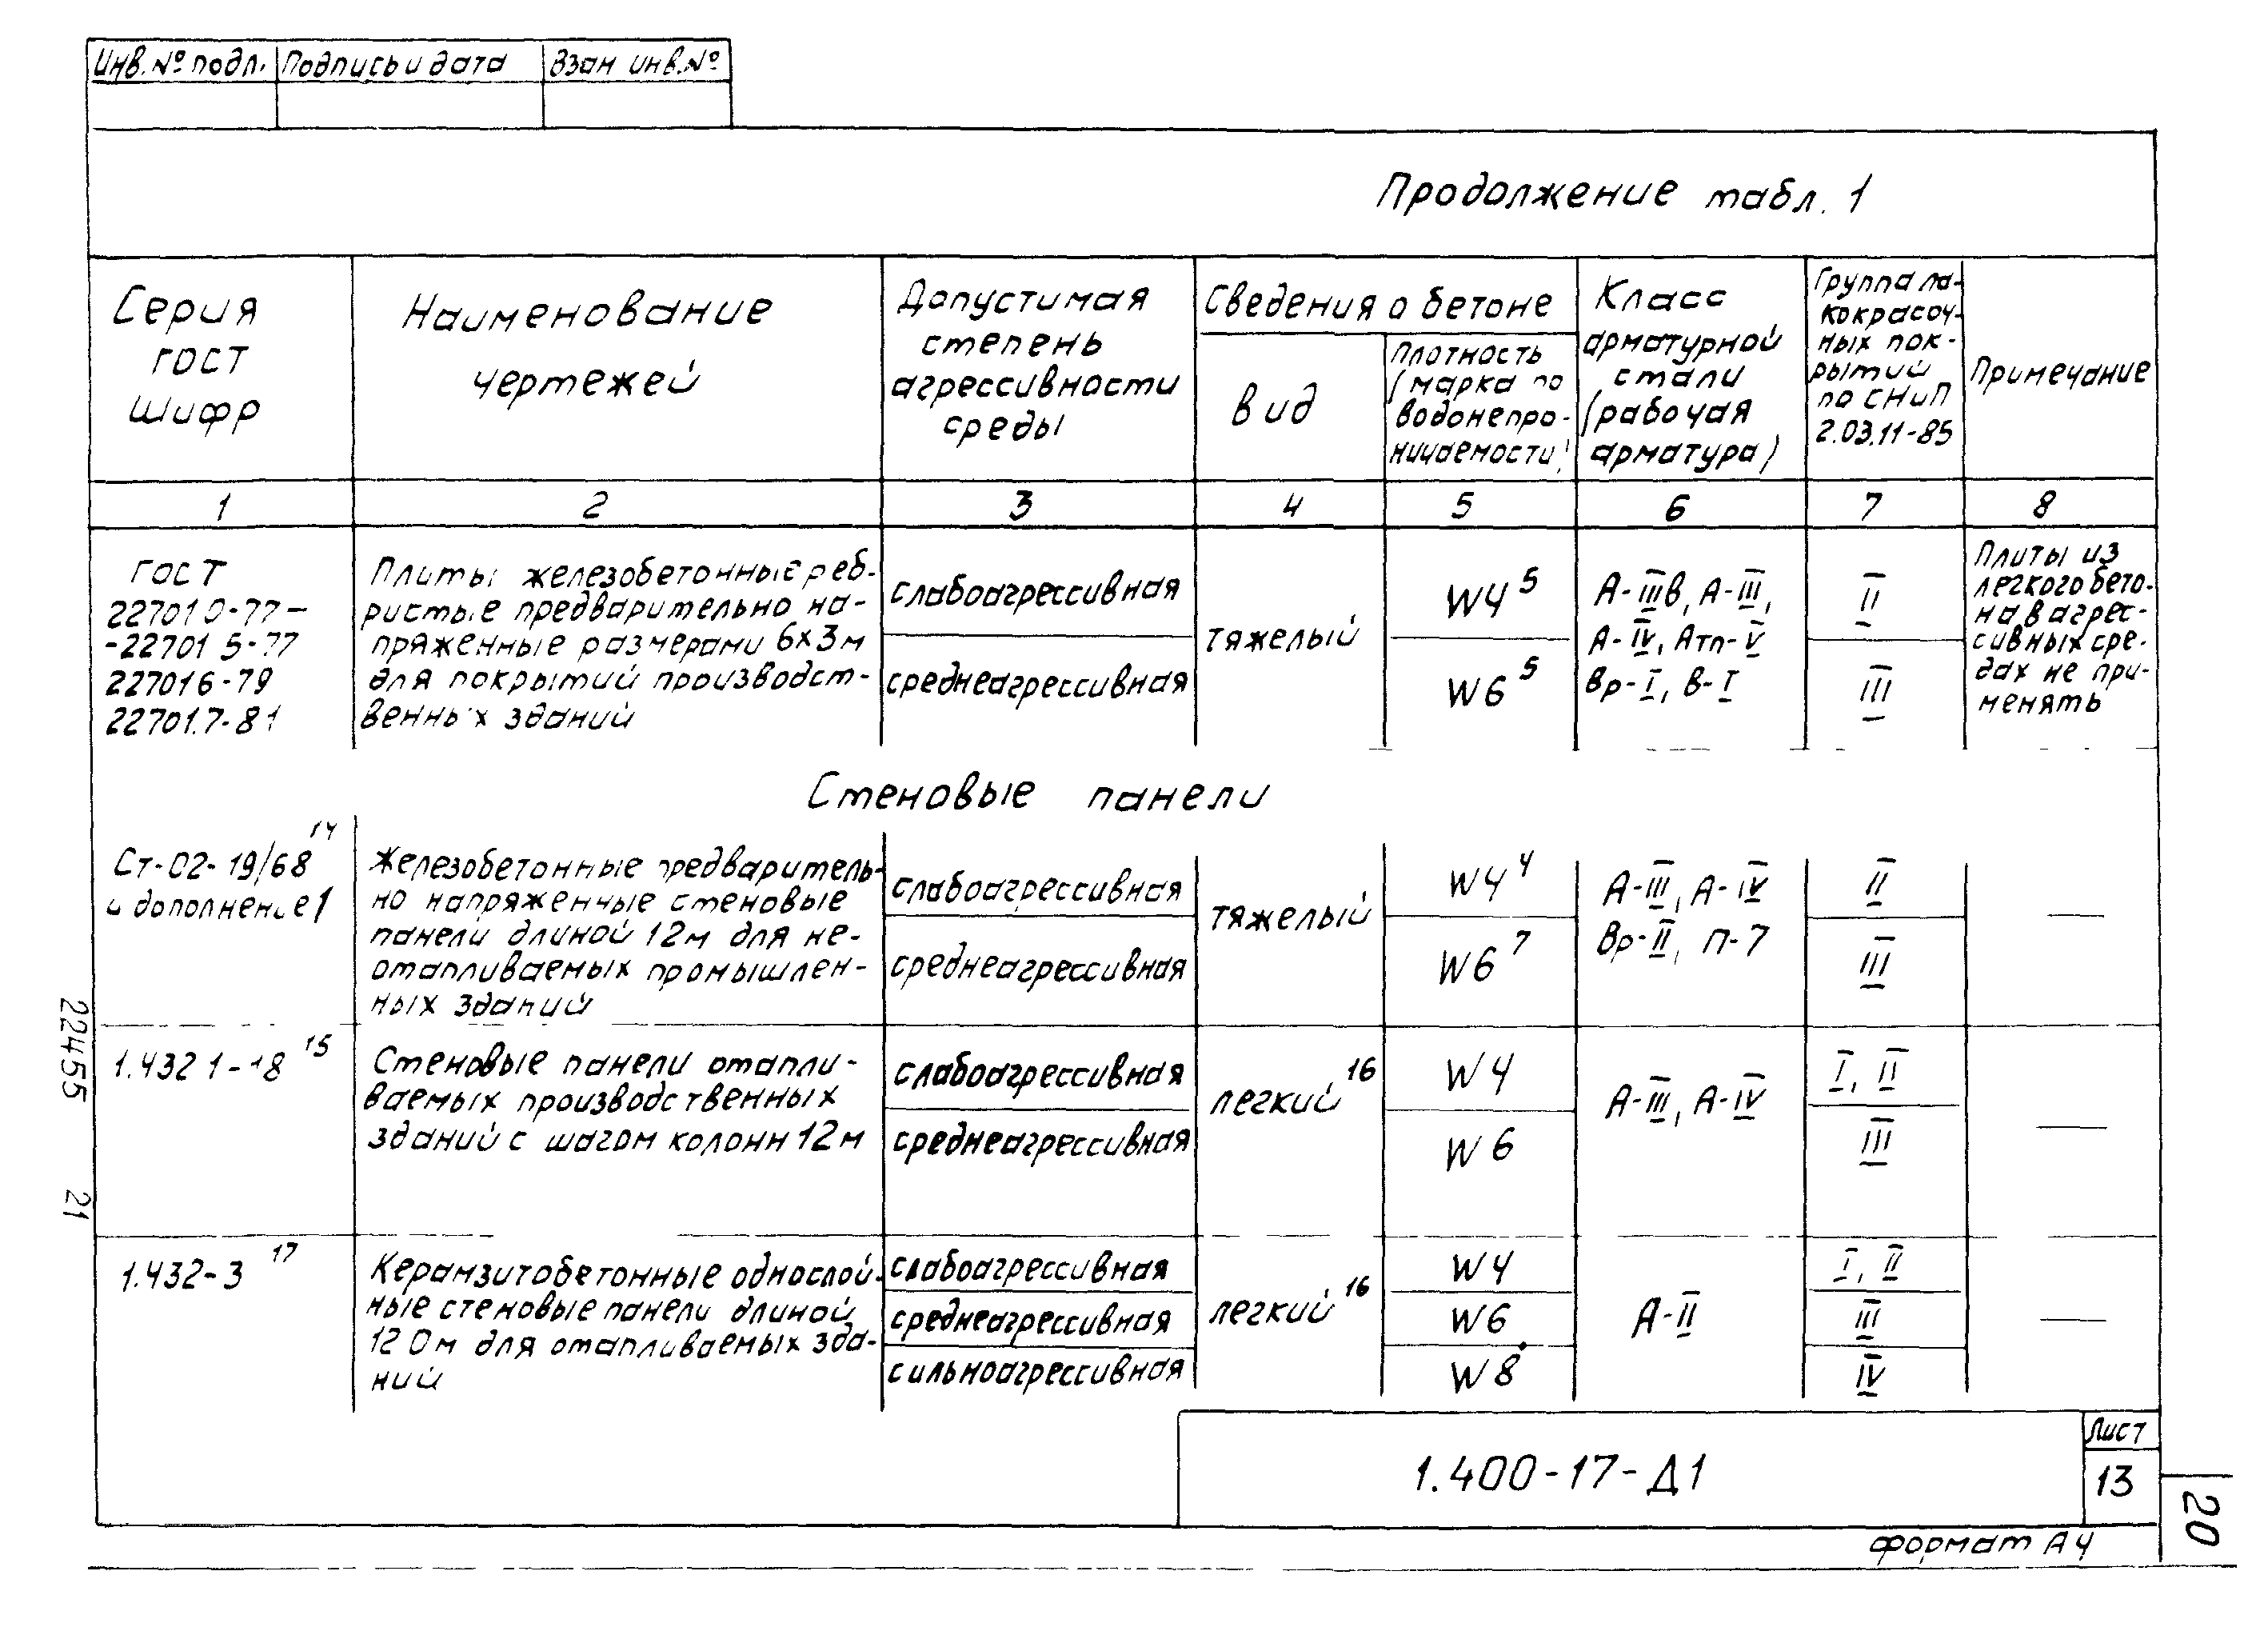 Инв. № подл. Подпись и дата Взам инв. №
Продолжение табл. 1
Серия
ГОСТ
Шифр
Наименование
чертежей
Допустимая
степень
агрессивности
среды
Сведения о бетоне
Вид
Плотность
(марка по
водонепро-
ницаемости)
Класс
арматурной
стали
(рабочая
арматура)
Группа ла-
кокрасоч-
ных пок-
рытий
по СНиП
2.03.11-85
Примечание
1 2 3 4 5 6 7 8
ГОСТ
22701 0-77-
-22701 5-77
227016-79
22701.7-81
Плиты железобетонные реб-
ристые предварительно на-
пряженные размерами 6х3м
для покрытий производст-
венных зданий
слабоагрессивная
среднеагрессивная
тяжелый
W4 5
W6 5
А-IIIв, А-III,
А-IV, Атп-V
Вр-I, В-I
II
III
Плиты из
легкого бето-
на в агрес-
сивных сре-
дах не при-
менять
Стеновые панели
Ст-02-19/68 14
и дополнение 1
Железобетонные предваритель-
но напряженные стеновые
панели длиной 12м для не-
отапливаемых промышлен-
ных зданий
слабоагрессивная
среднеагрессивная
тяжелый
W4 4
W6 7
А-III, А-IV
Вр-II, П-7
II
III
—
1.432 1-18 15
Стеновые панели отапли-
ваемых производственных
зданий с шагом колонн 12м
слабоагрессивная
среднеагрессивная
легкий 16
W4
W6
А-III, А-IV
I, II
III
—
1.432-3 17
Керамзитобетонные однослой-
ные стеновые панели длиной
12 0м для отапливаемых зда-
ний
слабоагрессивная
среднеагрессивная
сильноагрессивная
легкий 16
W4
W6
W8
А-II
I, II
III
IV
—
22455 21
1.400-17-Д1
Лист
13
20
формат А4